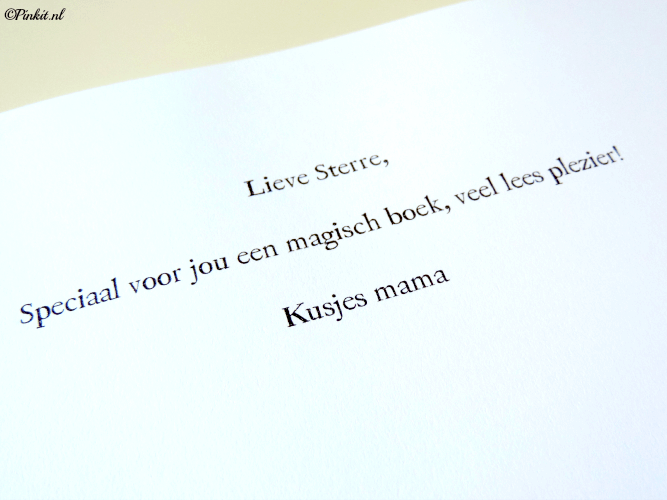 ©Pinkit.nl
Lieve Sterre,
Speciaal voor jou een magisch boek, veel lees plezier!
Kusjes mama